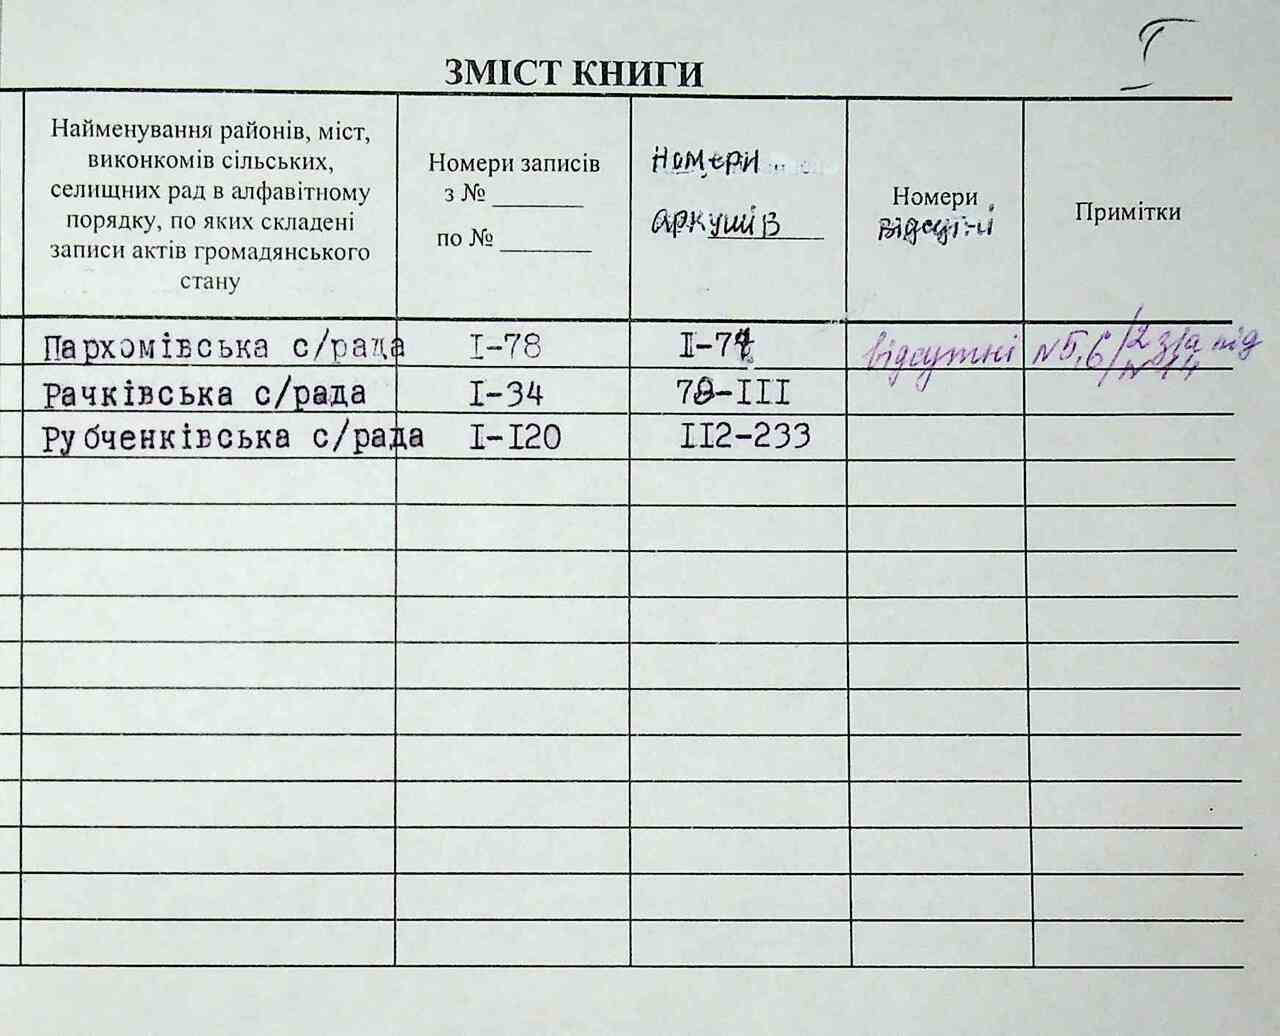 I
ЗМІСТ КНИГИ
Найменування районів, міст,
виконкомів сільських,
селищних рад в алфавітному
порядку, по яких складені
записи актів громадянського
стану
Номери записів
з № _______
по № _______
Номери
аркушів
Номери
відсутні
Примітки
Пархомівська с/рада I-78 I-77 відсутні №5,6/2 з/а під
Рачківська с/рада I-34 78-III
Рубченківська с/рада I-I20 II2-233